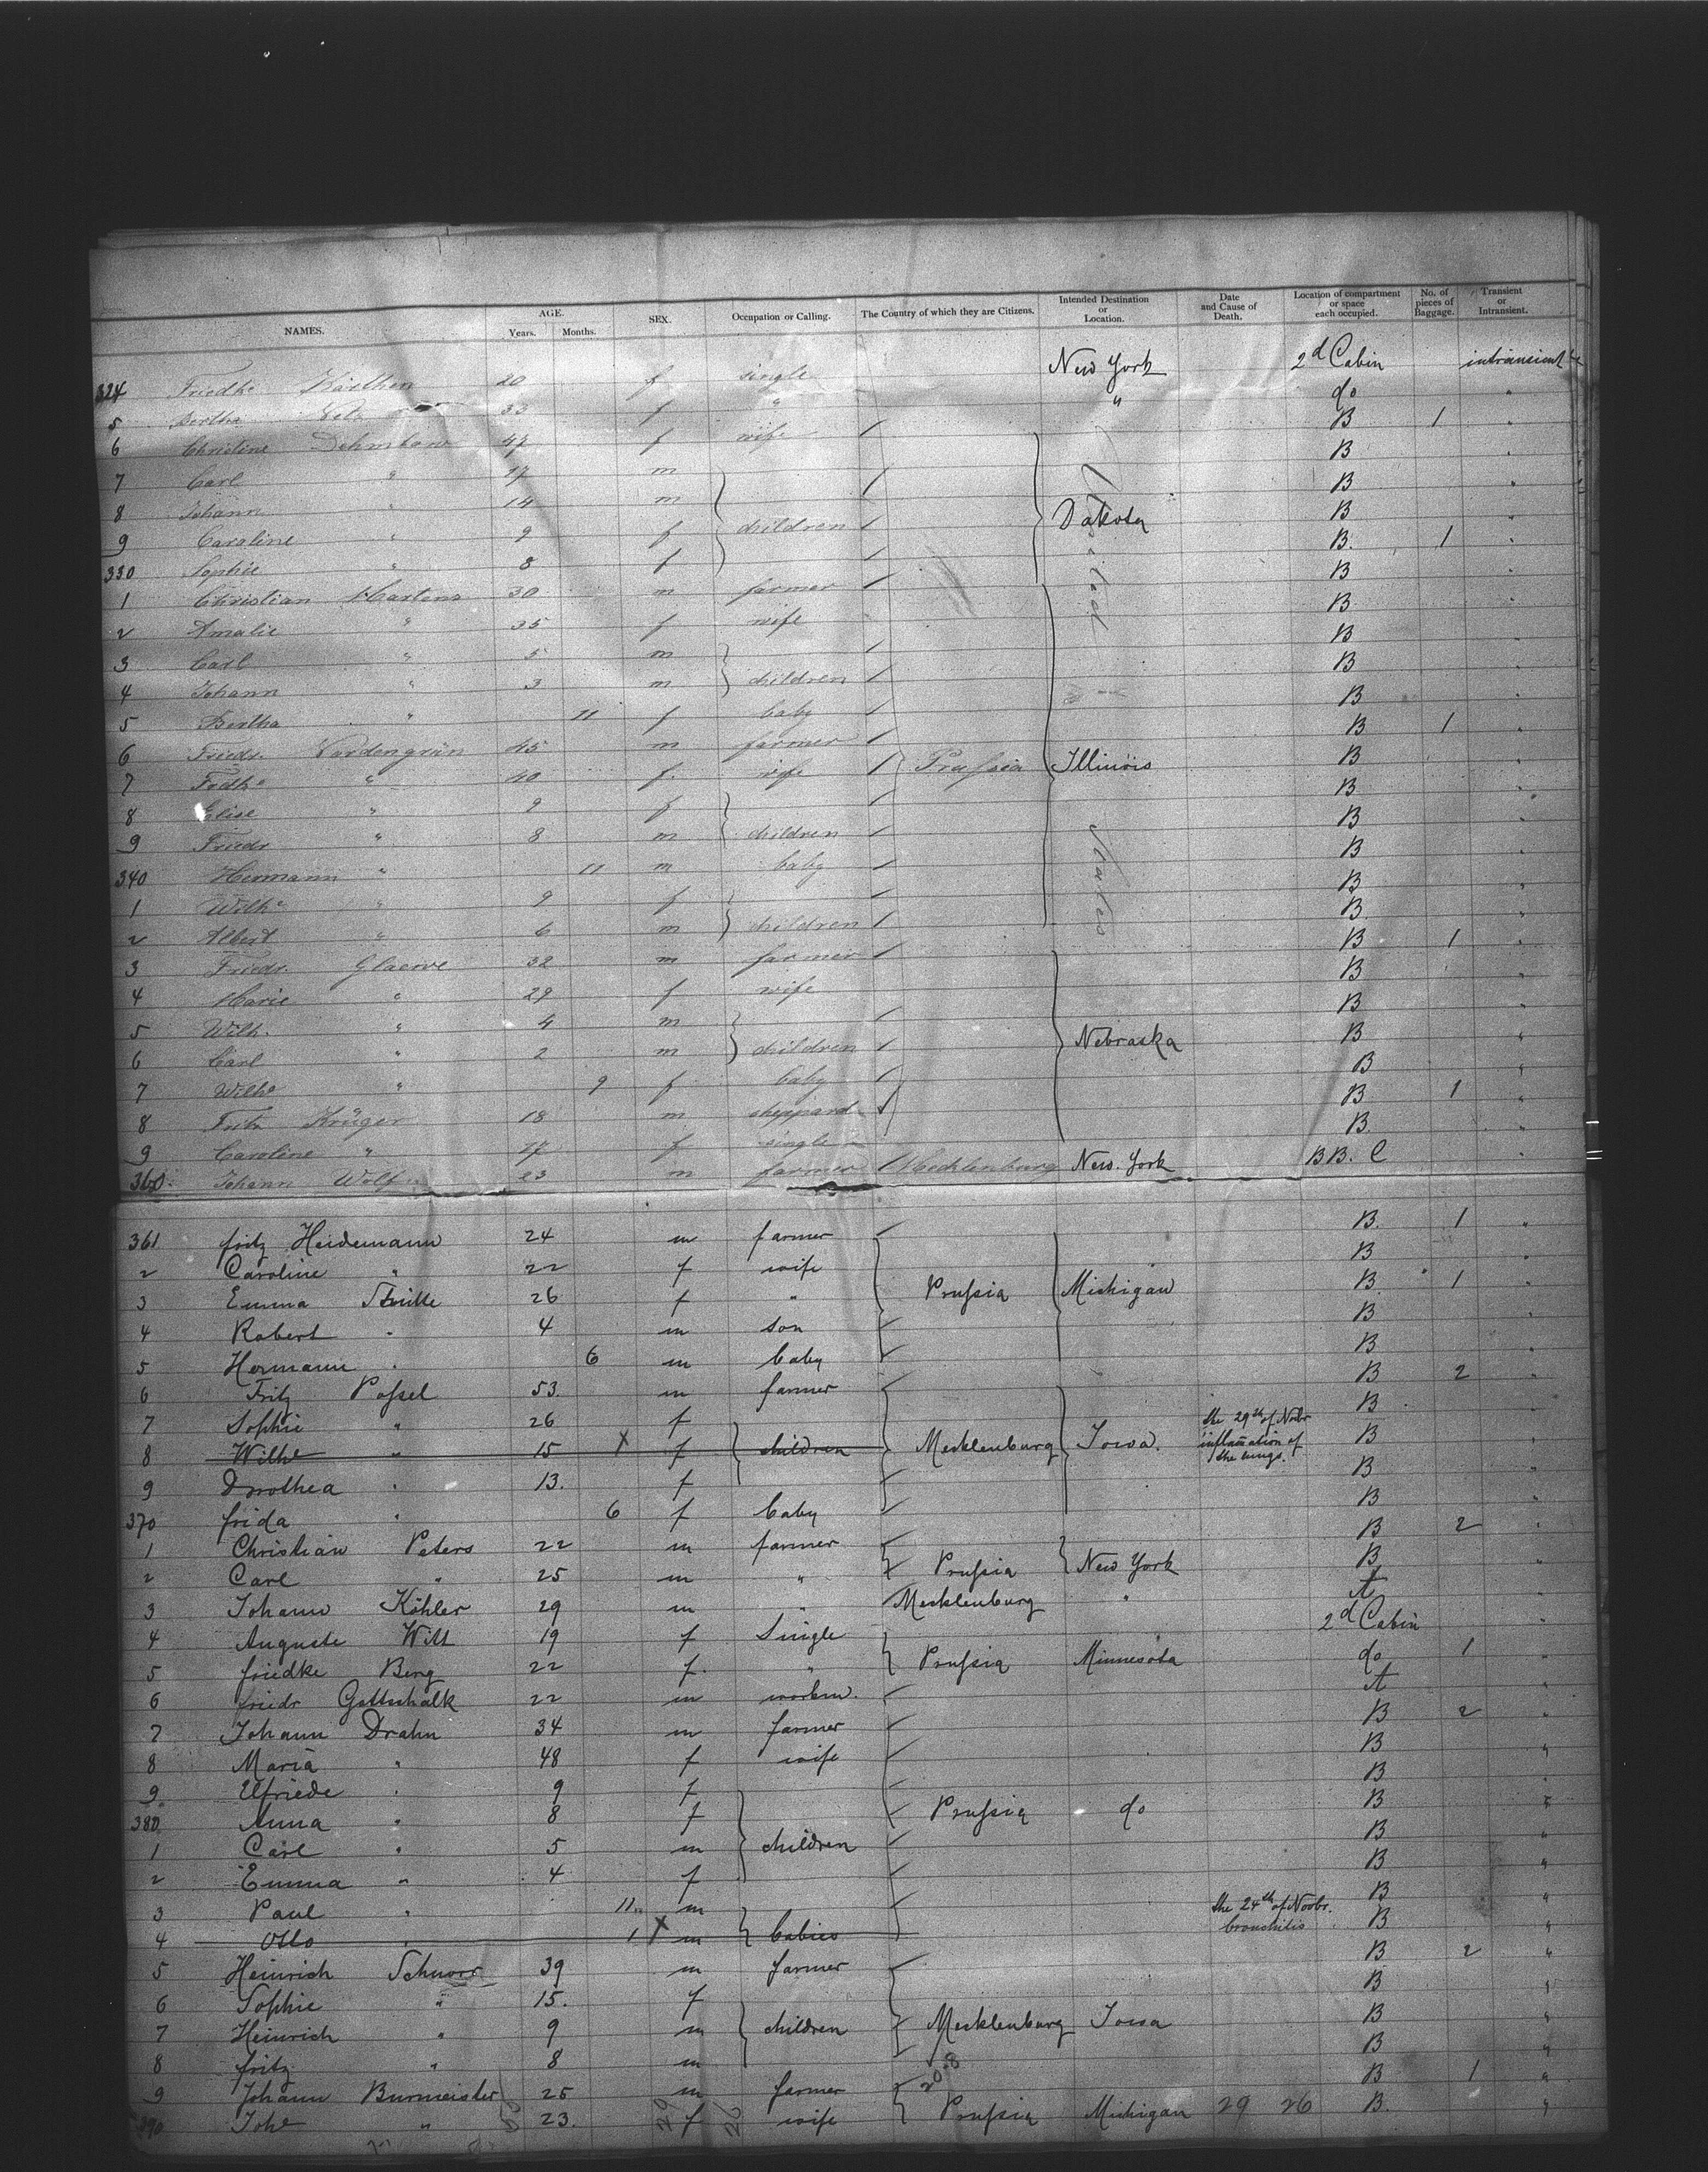 NAMES. AGE. Years. Months. SEX. Occupation or Calling. The Country of which they are Citizens. Intended Destination or Location. Date and Cause of Death. Location of compartment or space each occupied. No. of pieces of Baggage. Transient or Intransient.
324 Friedke 20 f single New York 2d Cabin intransient
5 Bertha 33 f " " do "
6 Christine 47 f wife / B 1 "
7 Carl " 17 m B "
8 Johann " 14 m / B "
9 Caroline " 9 f children / Dakota B "
330 Sophie " 8 f / B. 1 "
1 Christian Martens 30 m farmer / B "
2 Amalie " 35 f wife United B
3 Carl " 5 m / B
4 Johann " 3 m children / B "
5 Bertha " 11 f baby / B "
6 Friedr. Nordengrün 45 m farmer / B 1 "
7 Fredke " 40 f. wife / Prussia Illinois B "
8 Elise " 9 f / B "
9 Friedr " 8 m children / B "
340 Hermann " 11 m baby / B
1 Wilhe " 9 f / States B "
2 Albert " 6 m children / B "
3 Friedr. Glaewe 32 m farmer / B 1 "
4 Marie " 29 f wife B "
5 Wilh. " 4 m / B "
6 Carl " 2 m children / Nebraska B "
7 Wilhe " 9 f baby / B "
8 Fritz Krüger 18 m sheppard / B 1 "
9 Caroline " 17 f single B. "
360. Johann Wolf 23 m farmer / Mecklenburg New York BB. C "
361 fritz Heidemann 24 m farmer B. 1 "
2 Caroline " 22 f wife B "
3 Emma 26 f " Prussia Michigan B 1 "
4 Robert " 4 m son B "
5 Hermann " 6 m baby B "
6 Fritz Possel 53. m farmer B 2 "
7 Sophie " 26 f the 29th of Novbr B "
8 Wilhe " 15 X f children Mecklenburg Iowa. inflamation of the lungs. B "
9 Dorothea " 13. f B "
370 frida " 6 f baby B "
1 Christian Peters 22 m farmer B 2 "
2 Carl " 25 m " Prussia New York B "
3 Johann Köhler 29 m " Mecklenburg " A "
4 Auguste Witt 19 f Single 2d Cabin "
5 friedke Berg 22 f. " Prussia Minnesota do 1 "
6 friedr Gottschalk 22 m workm. A "
7 Johann Drahn 34 m farmer B 2 "
8 Maria " 48 f wife B "
9. Elfriede " 9 f B "
380 Anna " 8 f Prussia do B "
1 Carl " 5 m children B "
2 Emma " 4 f B "
3 Paul " 11 m the 24th of Novbr. B "
4 Otto " 1 X m babies bronchitis B "
5 Heinrich 39 m farmer B 2 "
6 Sophie " 15. f B "
7 Heinrich " 9 m children Mecklenburg Iowa B "
8 fritz " 8 m B "
9 Johann Burmeister 25 m farmer B 1 "
390 Johe " 23. f wife Prussia Michigan 29 26 B. "